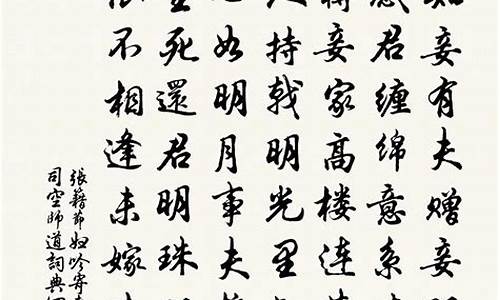 知妾有夫贈妾
感君纏綿意系
妾家高樓連
人持戟明光里
如明月事夫
生死還君明珠
不相逢未嫁
張籍節婦吟寄
司空師道詞典